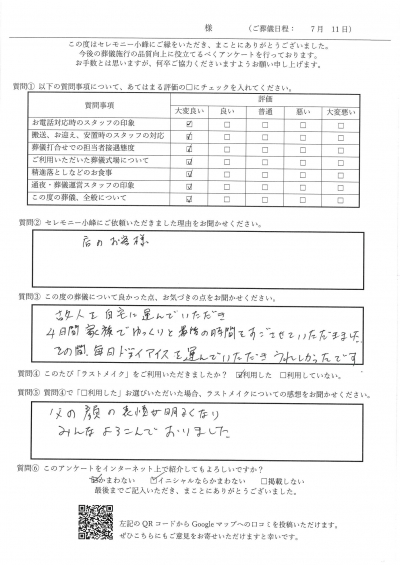 様 （ご葬儀日程： 7月 11日）
この度はセレモニー小峰にご縁をいただき、まことにありがとうございました。
今後の葬儀施行の品質向上に役立てるべくアンケートを行っております。
お手数とは思いますが、何卒ご協力くださいますようお願い申し上げます。
質問① 以下の質問事項について、あてはまる評価の□にチェックを入れてください。
質問事項 評価
大変良い 良い 普通 悪い 大変悪い
お電話対応時のスタッフの印象 ☑ □ □ □ □
搬送、お迎え、安置時のスタッフの対応 ☑ □ □ □ □
葬儀打合せでの担当者接遇態度 ☑ □ □ □ □
ご利用いただいた葬儀式場について ☑ □ □ □ □
精進落としなどのお食事 ☑ □ □ □ □
通夜・葬儀運営スタッフの印象 ☑ □ □ □ □
この度の葬儀、全般について ☑ □ □ □ □
質問② セレモニー小峰にご依頼いただきました理由をお聞かせください。
店のお客様
質問③ この度の葬儀について良かった点、お気づきの点をお聞かせください。
故人を自宅に運んでいただき
4日間家族でゆっくりと最後の時間をすごさせていただきました
その間、毎日ドライアイスを運んでいただきうれしかったです
質問④ このたび「ラストメイク」をご利用いただきましたか？ ☑利用した □利用していない。
質問⑤ 質問④で「□利用した」お選びいただいた場合、ラストメイクについての感想をお聞かせください。
父の顔の表情が明るくなり
みんなよろこんでおりました
質問⑥ このアンケートをインターネット上で紹介してもよろしいですか？
☑かまわない ☑イニシャルならかまわない □掲載しない
最後までご記入いただき、まことにありがとうございました。
左記のQRコードからGoogleマップへの口コミを投稿いただけます。
ぜひこちらにもご意見をお寄せいただけますと幸いです。